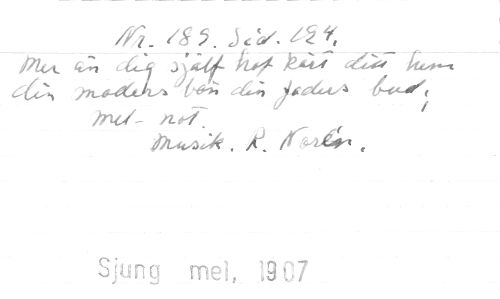 Nr. 189. Sid. 194.
Mer än dig själf haf kärt ditt hem
din moders bön din faders bud,
mel- not.
Musik. R. Norén.
Sjung mel, 1907